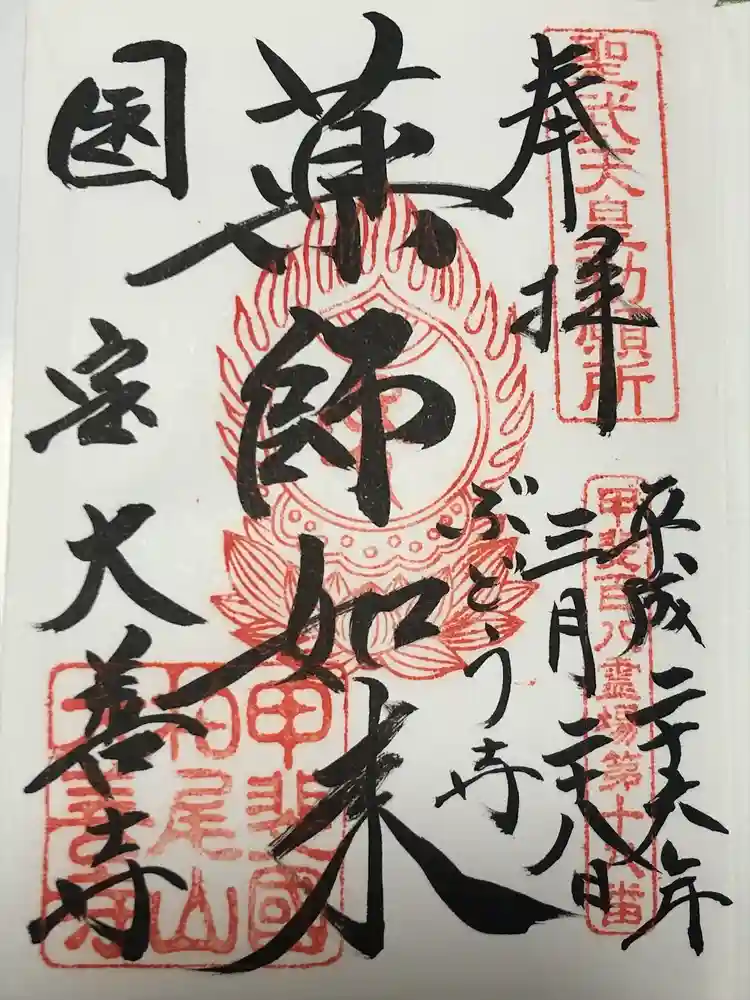 奉拝
聖武天皇勅願所
平成二十六年
三月二十八日
甲斐百八霊場第十八番
ぶどう寺
薬師如来
国宝大善寺
甲斐國
柏尾山
大善寺